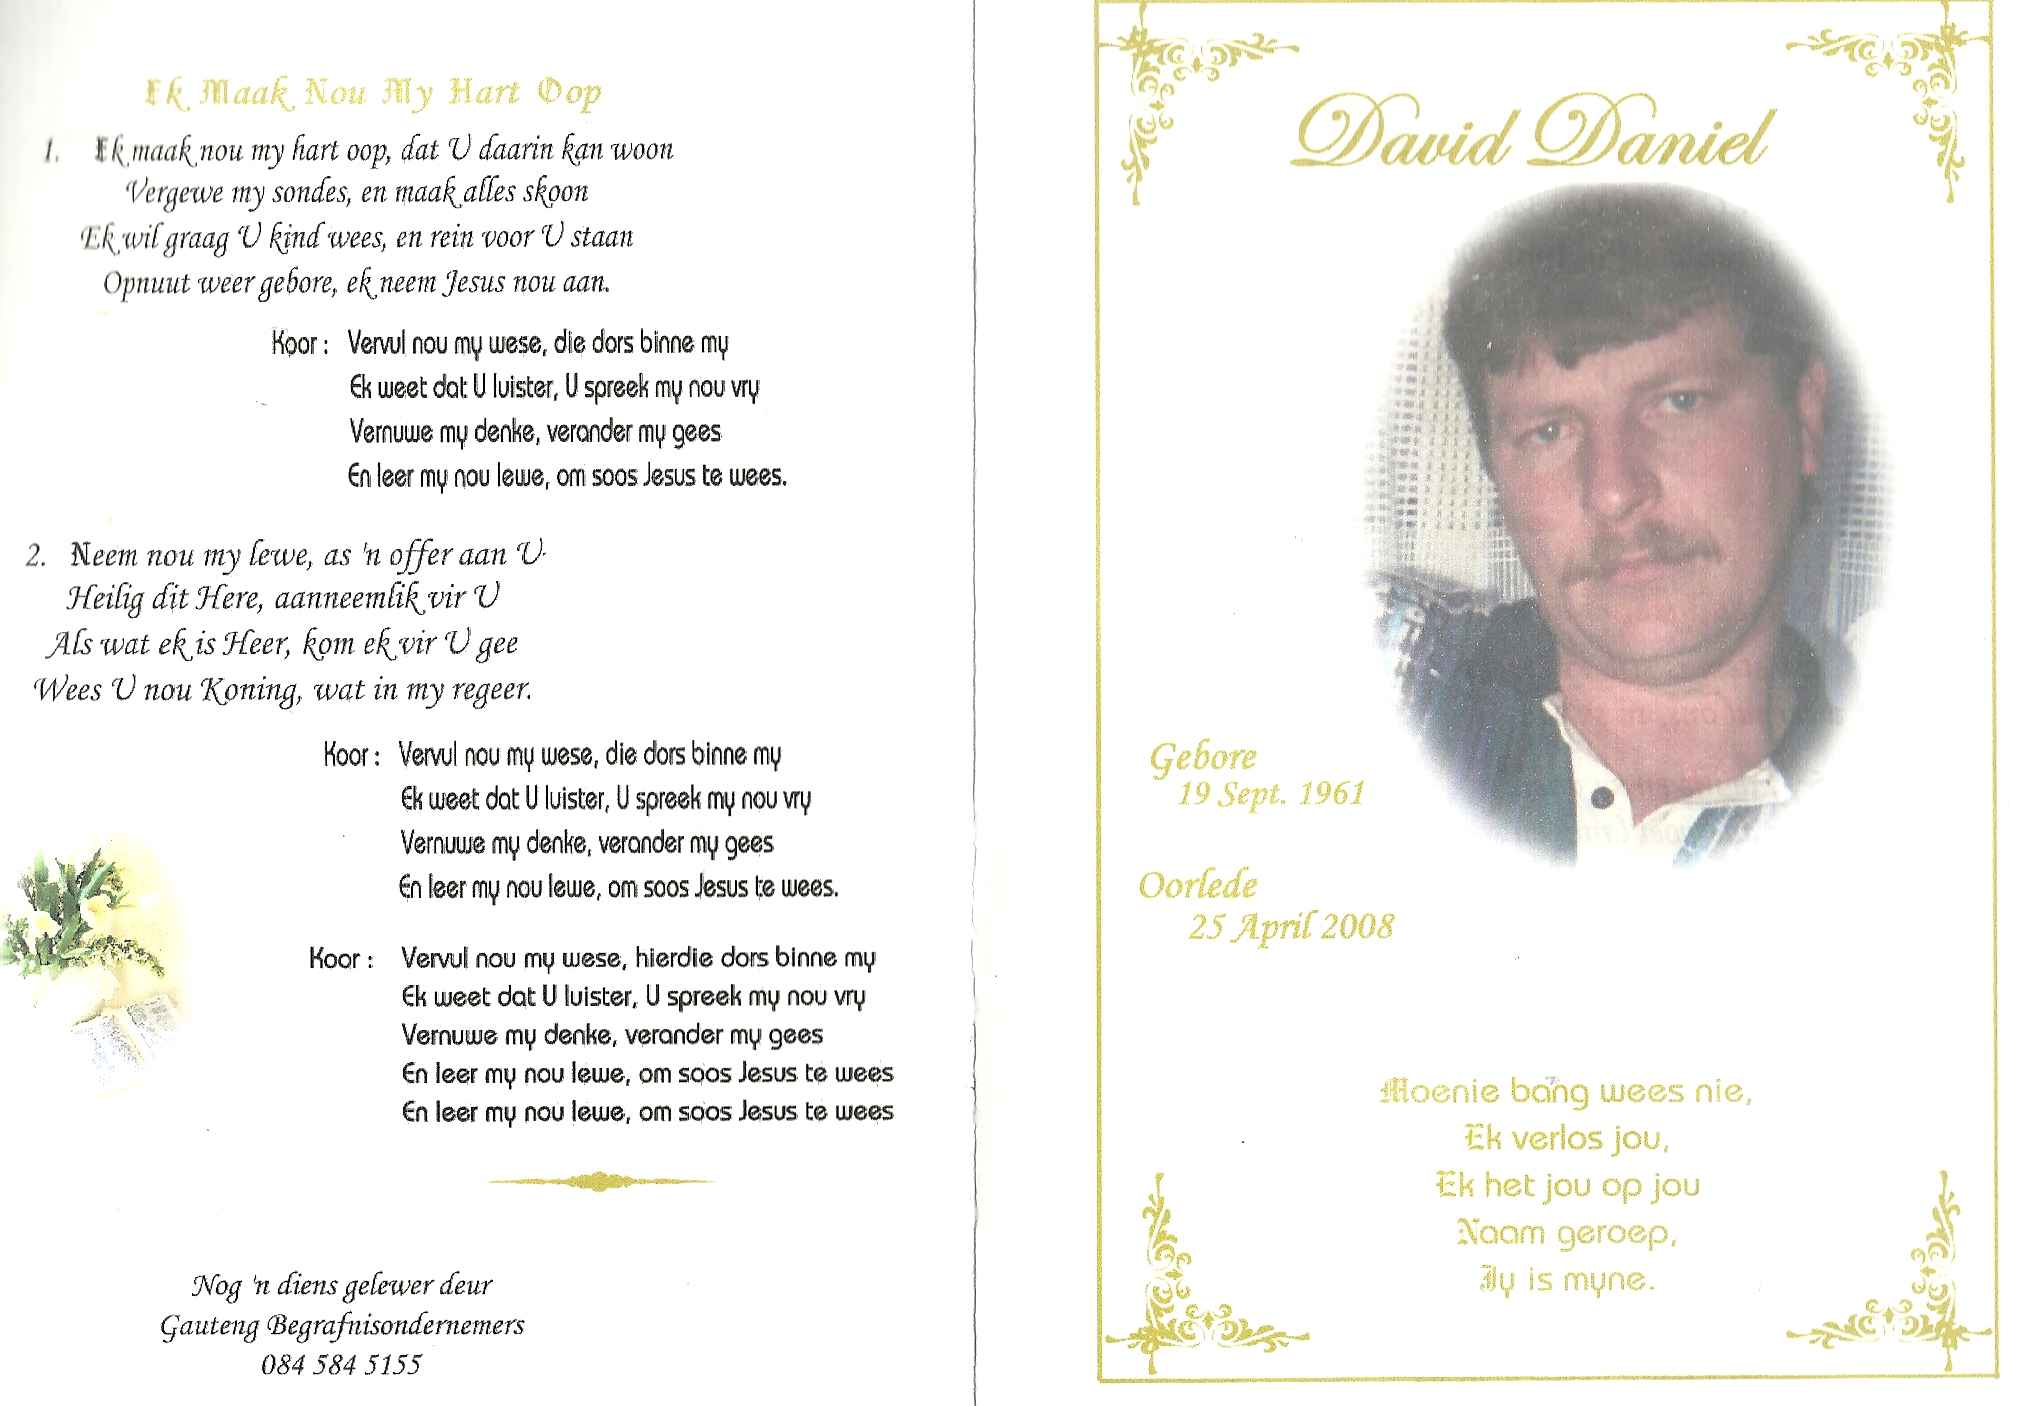 Ek Maak Nou My Hart Oop
1. Ek maak nou my hart oop, dat U daarin kan woon
Vergewe my sondes, en maak alles skoon
Ek wil graag U kind wees, en rein voor U staan
Opnuut weer gebore, ek neem Jesus nou aan.
Koor : Vervul nou my wese, die dors binne my
Ek weet dat U luister, U spreek my nou vry
Vernuwe my denke, verander my gees
En leer my nou lewe, om soos Jesus te wees.
2. Neem nou my lewe, as 'n offer aan U
Heilig dit Here, aanneemlik vir U
Als wat ek is Heer, kom ek vir U gee
Wees U nou Koning, wat in my regeer.
Koor : Vervul nou my wese, die dors binne my
Ek weet dat U luister, U spreek my nou vry
Vernuwe my denke, verander my gees
En leer my nou lewe, om soos Jesus te wees.
Koor : Vervul nou my wese, hierdie dors binne my
Ek weet dat U luister, U spreek my nou vry
Vernuwe my denke, verander my gees
En leer my nou lewe, om soos Jesus te wees
En leer my nou lewe, om soos Jesus te wees
Nog 'n diens gelewer deur
Gauteng Begrafnisondernemers
084 584 5155
David Daniel
Gebore
19 Sept. 1961
Oorlede
25 April 2008
Moenie bang wees nie,
Ek verlos jou,
Ek het jou op jou
Naam geroep,
Jy is myne.